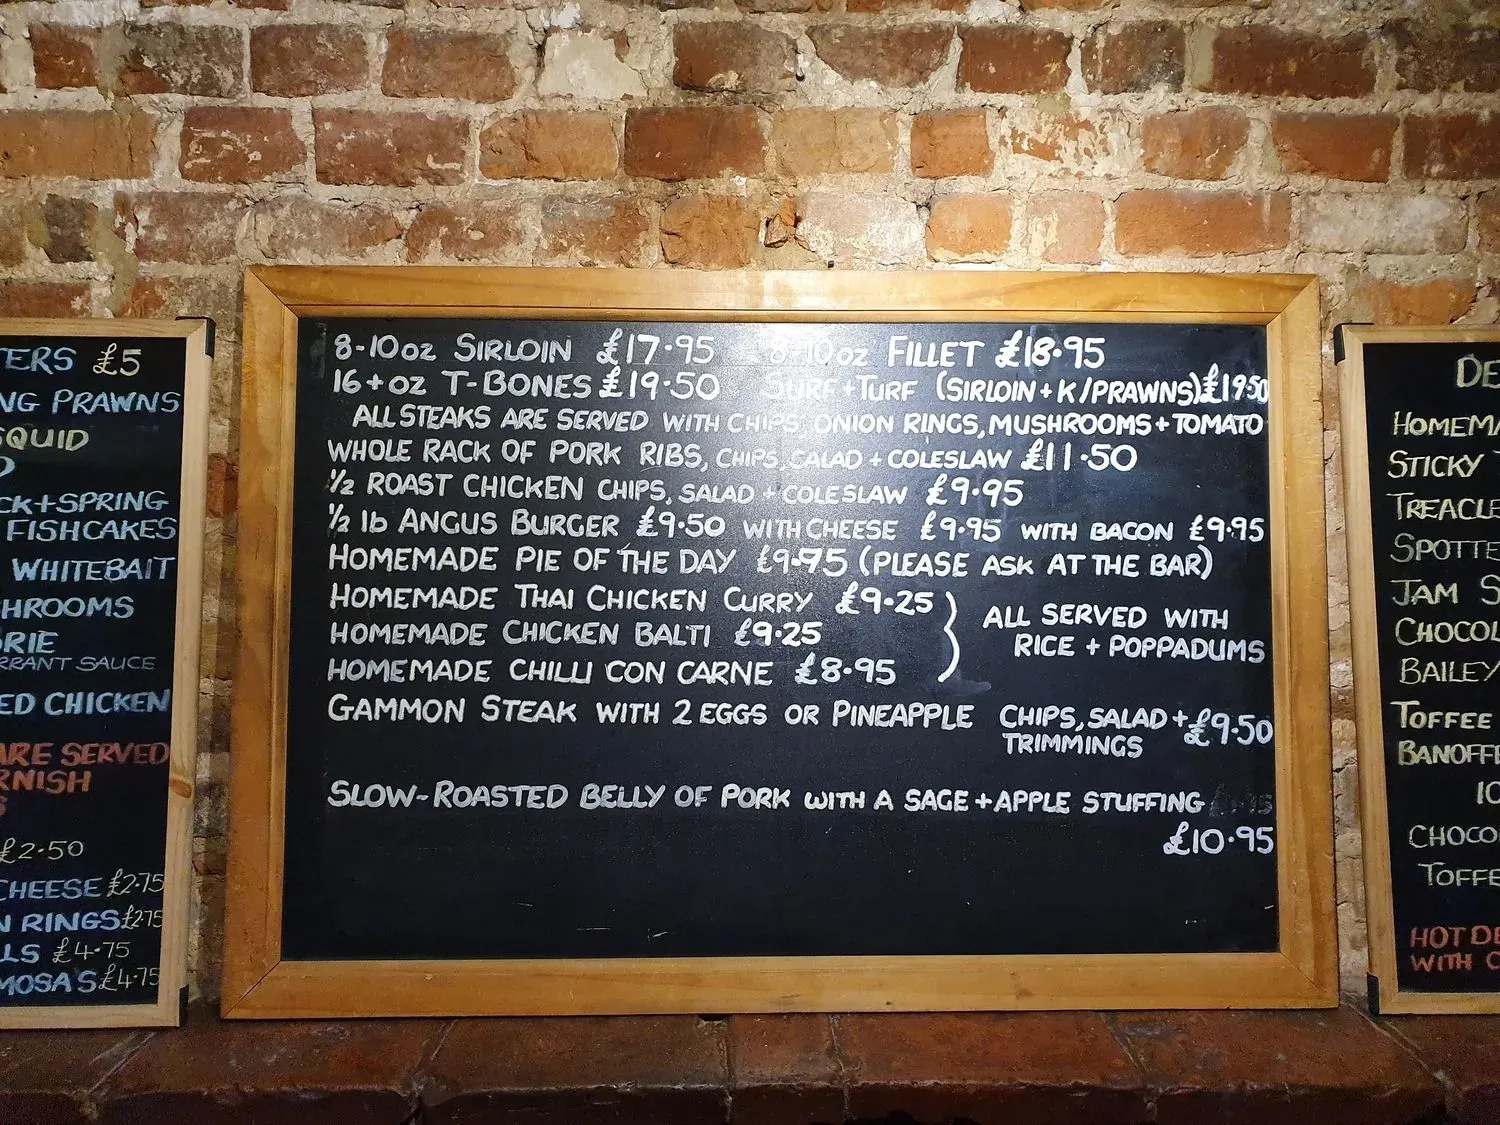 TERS £5
NG PRAWNS
SQUID
CK+SPRING
FISHCAKES
WHITEBAIT
HROOMS
BRIE
RRANT SAUCE
ED CHICKEN
ARE SERVED
RNISH
£2·50
CHEESE £2·75
N RINGS £2·75
LS £4·75
MOSA'S £4·75
8-10oz SIRLOIN £17·95 8-10oz FILLET £18·95
16+oz T-BONES £19·50 SURF+TURF (SIRLOIN+K/PRAWNS) £19·50
ALL STEAKS ARE SERVED WITH CHIPS, ONION RINGS, MUSHROOMS+TOMATO
WHOLE RACK OF PORK RIBS, CHIPS, SALAD + COLESLAW £11·50
½ ROAST CHICKEN CHIPS, SALAD + COLESLAW £9·95
½ lb ANGUS BURGER £9·50 WITH CHEESE £9·95 WITH BACON £9·95
HOMEMADE PIE OF THE DAY £9·75 (PLEASE ASK AT THE BAR)
HOMEMADE THAI CHICKEN CURRY £9·25
HOMEMADE CHICKEN BALTI £9·25
HOMEMADE CHILLI CON CARNE £8·95
ALL SERVED WITH
RICE + POPPADUMS
GAMMON STEAK WITH 2 EGGS OR PINEAPPLE CHIPS, SALAD + £9·50
TRIMMINGS
SLOW-ROASTED BELLY OF PORK WITH A SAGE+APPLE STUFFING
£10·95
DE
HOMEMA
STICKY T
TREACLE
SPOTTE
JAM S
CHOCOL
BAILEY
TOFFEE
BANOFFE
10
CHOCO
TOFFE
HOT DE
WITH C